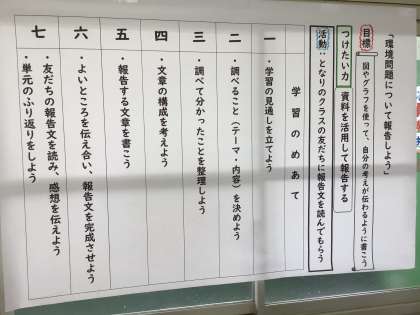 「環境問題について報告しよう」
目標 図やグラフを使って、自分の考えが伝わるように書こう
つけたい力 資料を活用して報告する
活動:となりのクラスの友だちに報告文を読んでもらう
学習のめあて
一 ・学習の見通しを立てよう
二 ・調べること(テーマ・内容)を決めよう
三 ・調べて分かったことを整理しよう
四 ・文章の構成を考えよう
五 ・報告する文章を書こう
六 ・よいところを伝え合い、報告文を完成させよう
七 ・友だちの報告文を読み、感想を伝えよう
・単元のふり返りをしよう